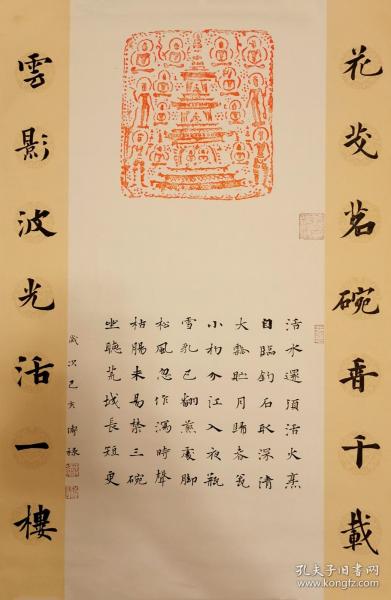 花箋茗碗香千載
活水還須活火烹
自臨釣石取深清
大瓢貯月歸春瓮
小杓分江入夜瓶
雪乳已翻煎處脚
松風忽作瀉時聲
枯腸未易禁三碗
坐聽荒城長短更
歲次己亥
雲影波光活一樓
孔夫子旧书网